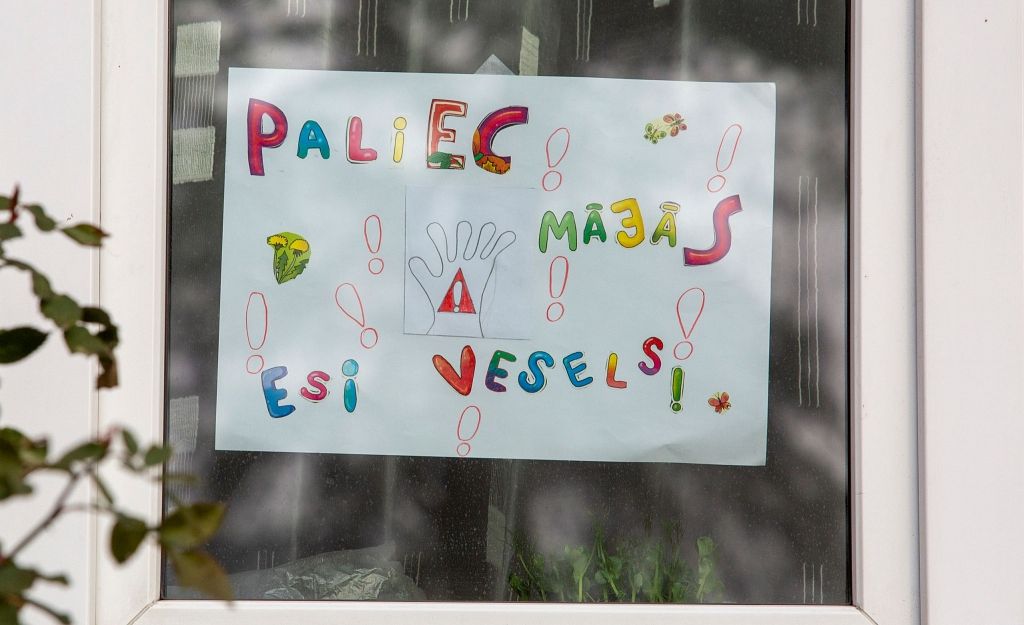 PALIEC
MĀJĀS
ESi VESELS!